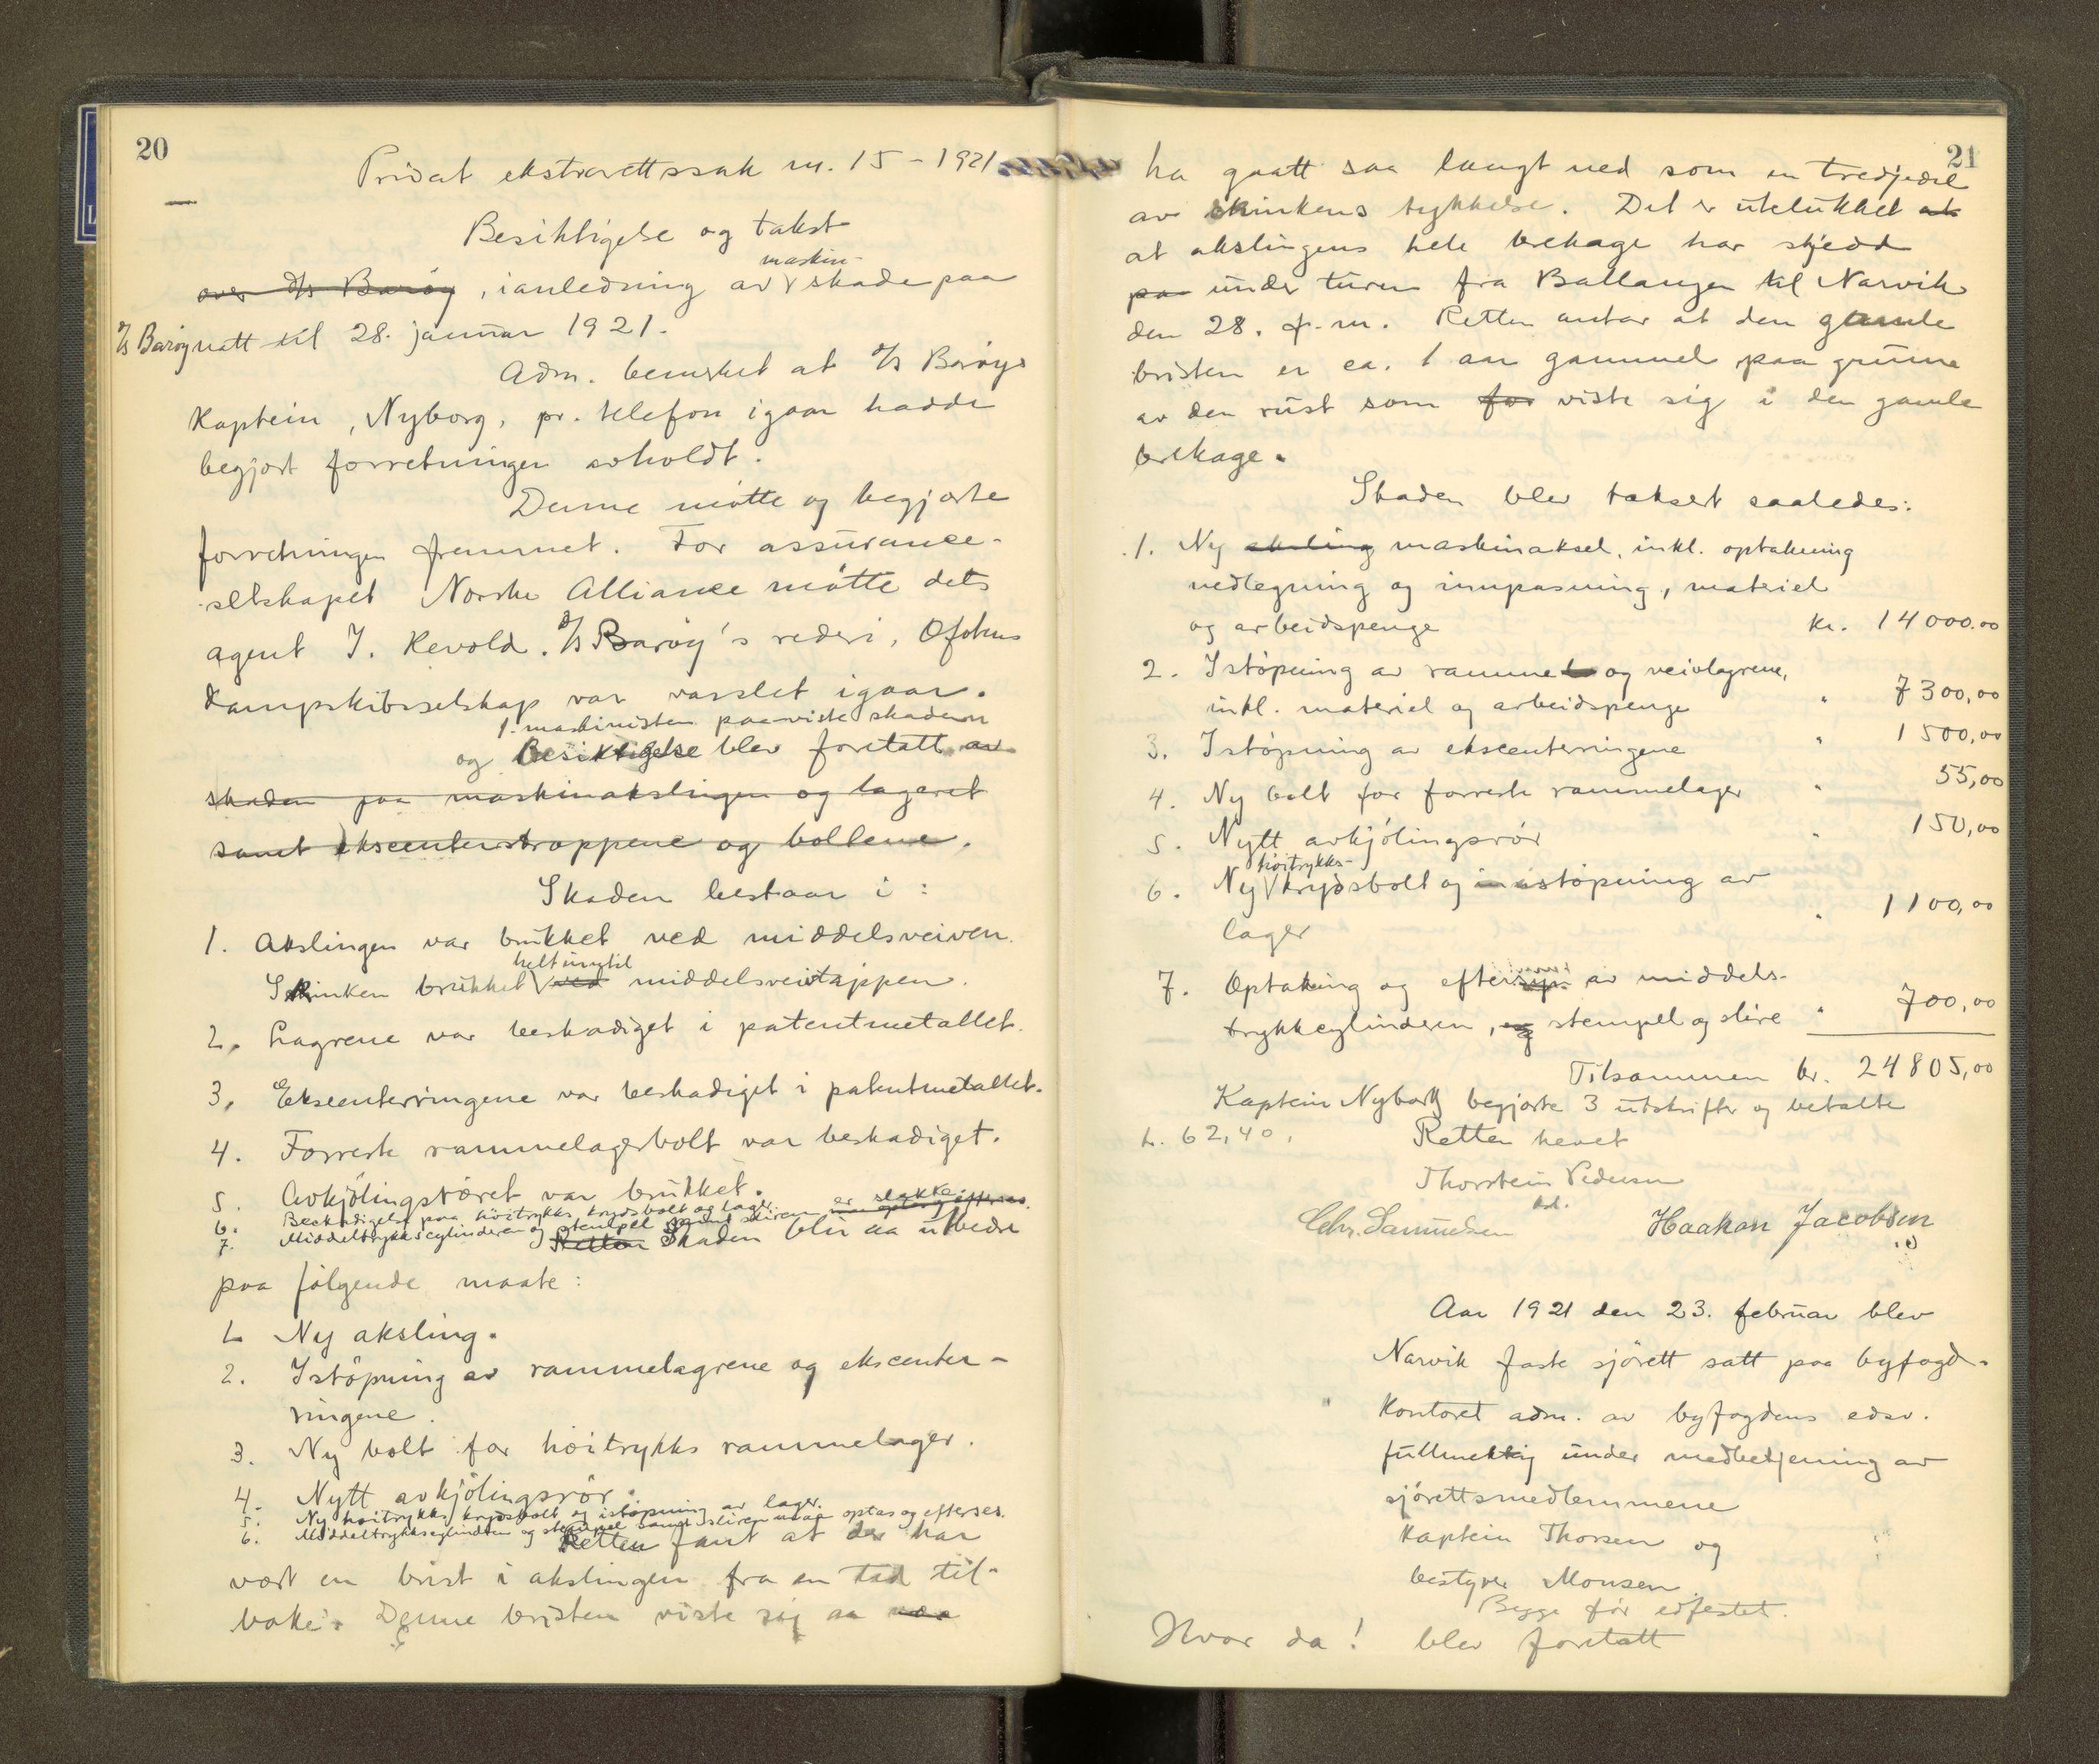 20
Privat ekstrarettssak nr. 15 - 1921
Besiktigelse og takst
maskin-
over d/s Barøy, i anledning av skade paa
d/s Barøy natt til 28. januar 1921.
Adm. bemerket at d/s Barøys
kaptein, Nyborg, pr. telefon igaar hadde
begjært forretningen avholdt.
Denne møtte og begjærte
forretningen fremmet. For assurance-
selskapet Norske Alliance møtte dets
agent J. Revold. d/s Barøy's rederi, Ofotens
Dampskibsselskap var varslet igaar.
1. maskinisten paaviste skaden
og Besiktigelse blev foretatt av
skaden paa maskinakslingen og lageret
samt ekscenterstroppene og boltene.
Skaden bestaar i :
1. Akslingen var brukket ved middelsveiven.
helt inntil
Skinken brukket ved middelsveivtappen.
2. Lagrene var beskadiget i patentmetallet.
3. Ekscenterringene var beskadiget i patentmetallet.
4. Forreste rammelagerbolt var beskadiget.
5. Avkjølingsrøret var brukket.
6. Beskadigelse paa høitrykks krydsbolt og lager.
7. Middeltrykkscylinderen og stempel samt sliren er slakke
Retten Skaden blir aa utbedre
paa følgende maate:
1. Ny aksling.
2. Istøpning av rammelagrene og ekscenter-
ringene.
3. Ny bolt for høitrykks rammelager.
4. Nytt avkjølingsrør.
5. Ny høitrykks krydsbolt og istøpning av lager.
6. Middeltrykkscylinderen og stempel samt sliren maa optas og efterses.
Retten fant at der har
vært en brist i akslingen fra en tid til-
bake. Denne bristen viste sig aa
21
ha gaatt saa langt ned som en tredjedel
av skinkens tykkelse. Det er utelukket at
at akslingens hele brekage har skjedd
paa under turen fra Ballangen til Narvik
den 28. f.m. Retten antar at den gamle
bristen er ca. 1 aar gammel paa grunn
av den rust som for viste sig i den gamle
brekage.
Skaden blev taksert saaledes:
1. Ny aksling maskinaksel, inkl. optakning
nedlegning og innpasning, materiel
og arbeidspenge kr. 14000.00
2. Istøpning av rammel og veivlagrene,
inkl. materiel og arbeidspenge " 7300,00
3. Istøpning av ekscenterringene " 1500,00
4. Ny bolt for forreste rammelager " 55,00
5. Nytt avkjølingsrør " 150,00
høitrykks-
6. Ny krydsbolt og istøpning av
lager " 1100,00
7. Optakning og eftersyn av middels-
trykkcylinderen, og stempel og slire " 700,00
Tilsammen kr. 24805,00
Kaptein Nyborg begjærte 3 utskrifter og betalte
kr. 62,40.
Retten hevet
Thorstein Pedersen
kst.
Chr. Samuelsen Haakon Jacobsen
Aar 1921 den 23. februar blev
Narvik faste sjørett satt paa byfogd-
kontoret adm. av byfogdens edsv.
fullmektig under medbetjening av
sjørettsmedlemmene
kaptein Thorsen og
bestyrer Monsen.
Begge før edfestet.
Hvor da! blev foretatt